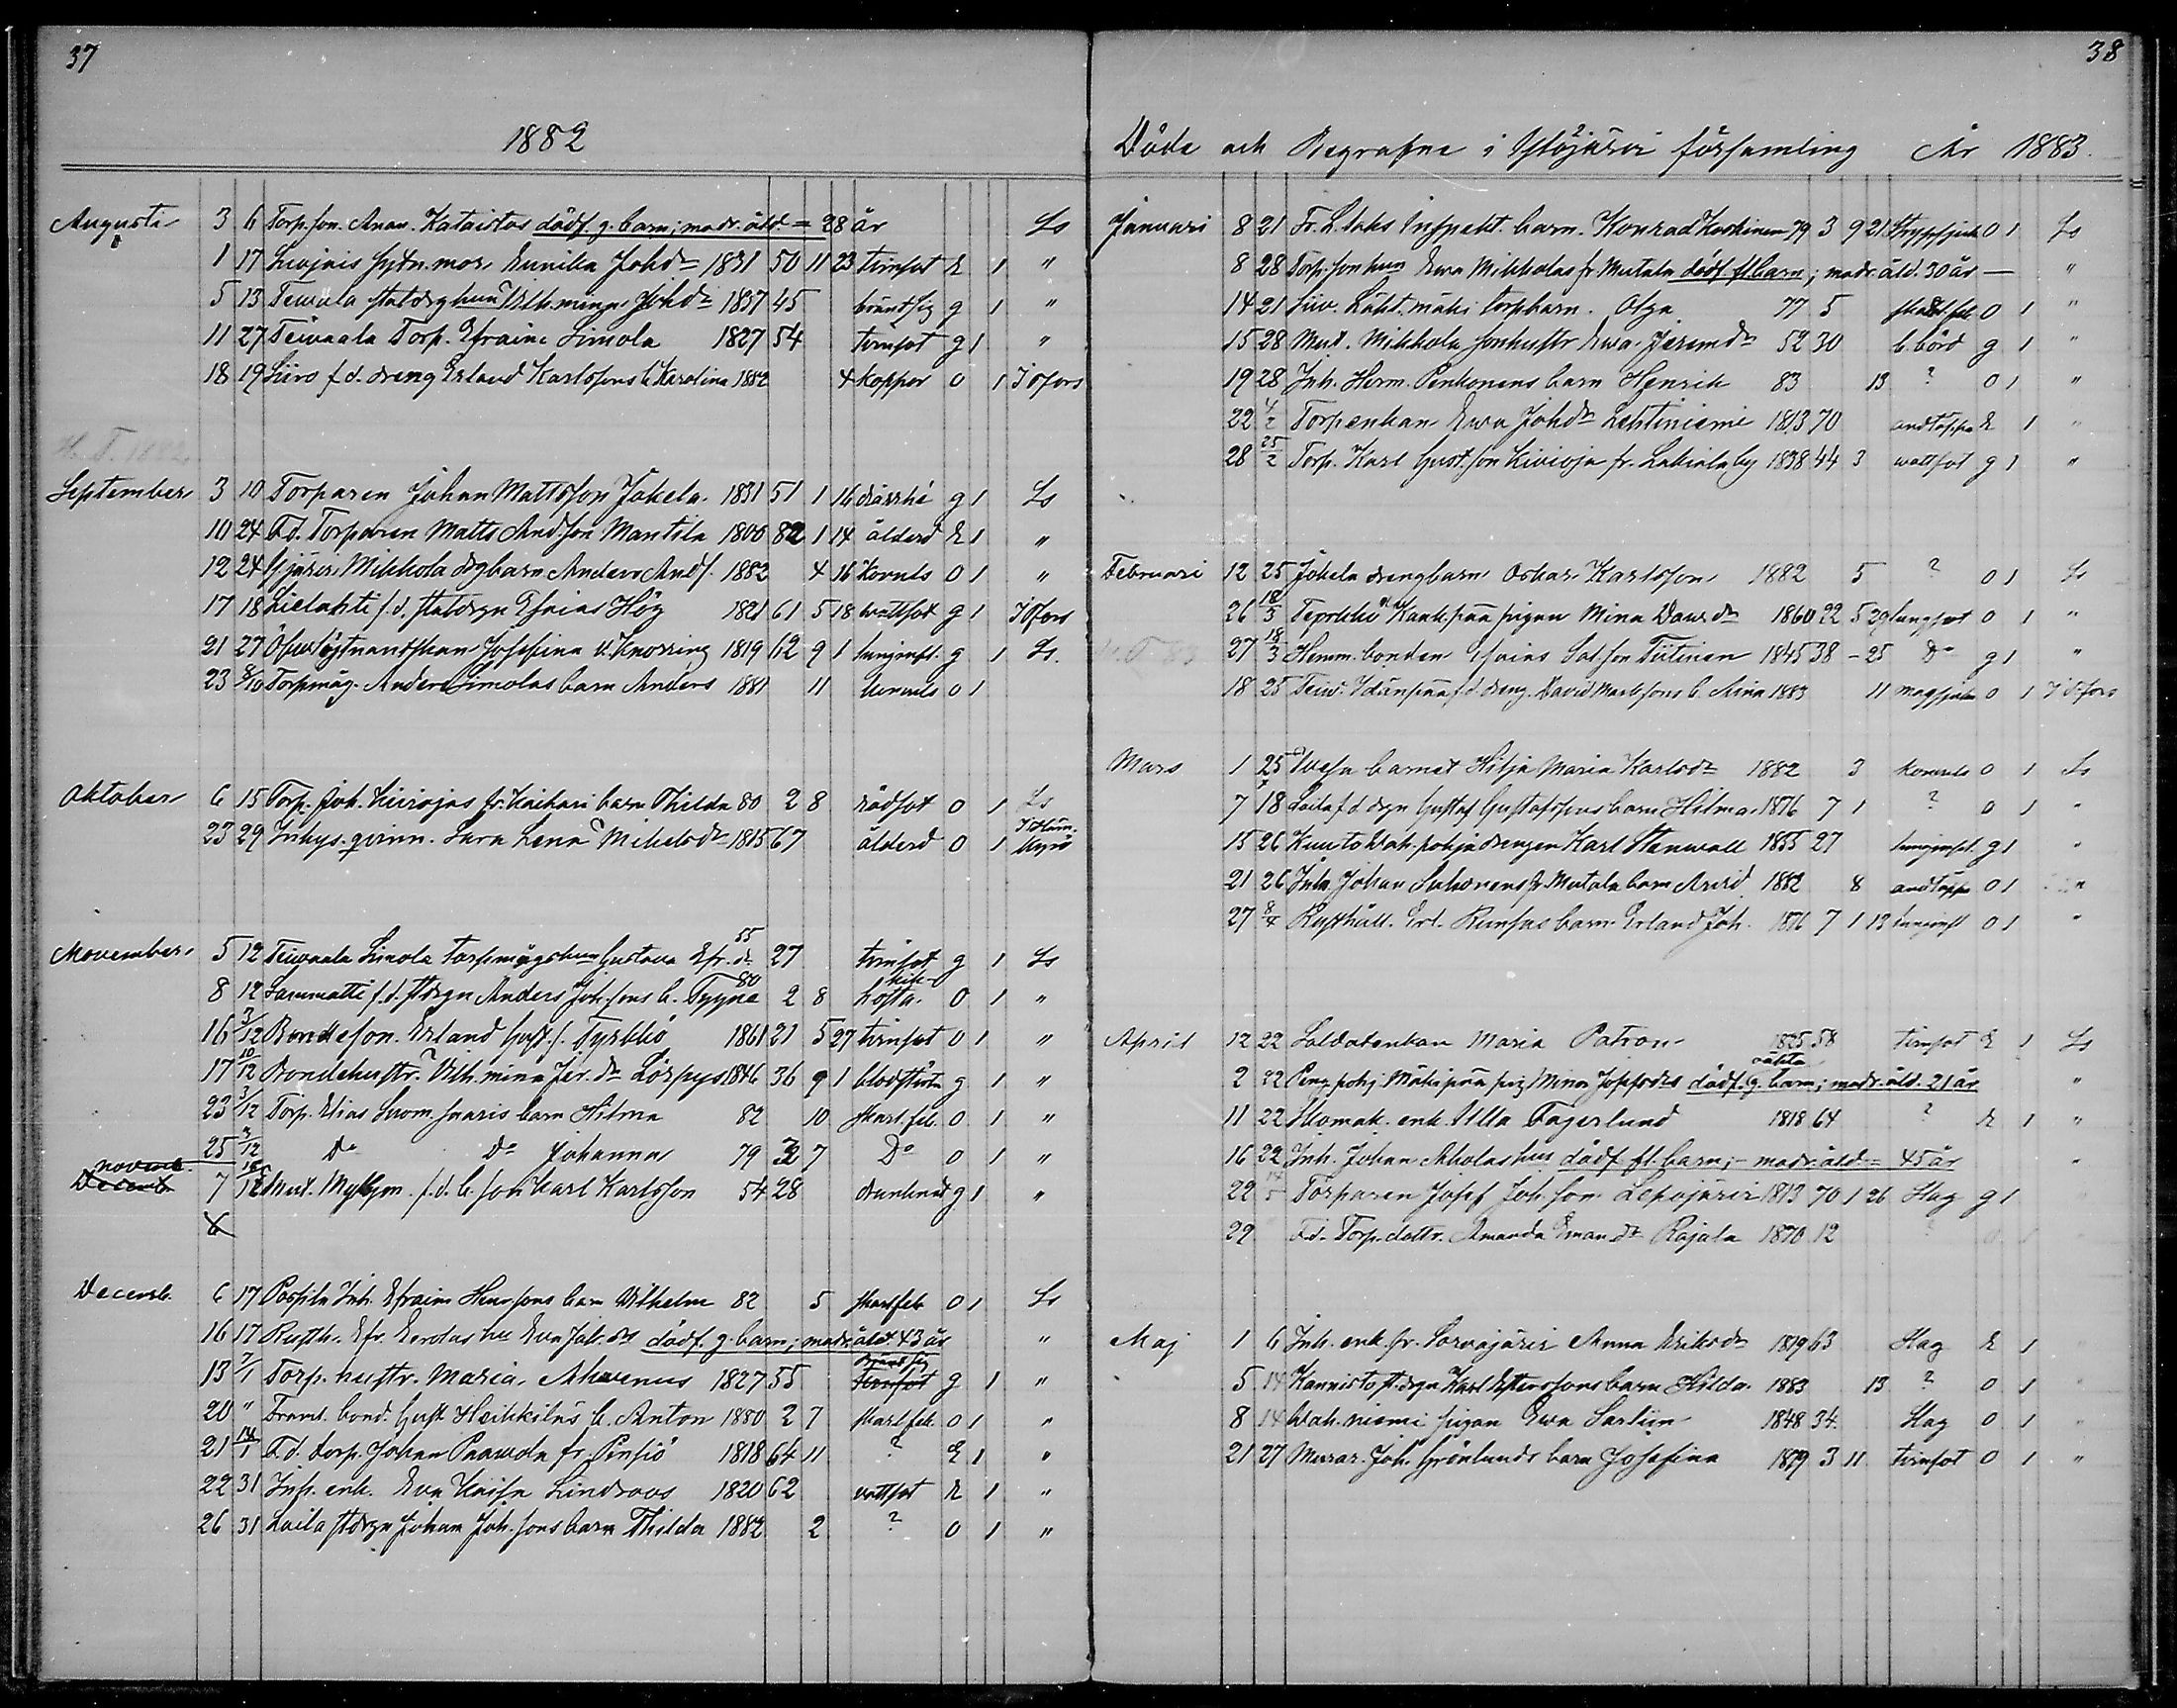 37
1882
Augusti 3 6 Torp. son. Anan. Kataistos dödf. g. barn; modr. åld. = 28 år Ls
1 17 mor Eunika Joh.dr 1831 50 11 23 tvinsot E 1 "
5 13 Teivaala hun Vilhmina Joh.dr 1837 45 brändt sig g 1 "
11 27 Teivaala Torp. Efraim Simola 1827 54 tvinsot g 1 "
18 19 Siuro f.d. dreng Erland Karlssons b. Karolina 1882 4 koppor 0 1 T.fors
H. T. 1882
September 3 10 Torparen Johan Mattsson Jokela 1831 51 1 16 diarrhé g 1 Ls
10 24 F.d. Torparen Matts Andsson Mantila 1800 82 1 14 ålderd E 1 "
12 24 Mikkola drgbarn Anders Andf. 1882 4 16 Konvuls 0 1 "
17 18 Lielahti f.d. statdrgn Esaias Hög 1821 61 5 18 vattsot g 1 T.fors
21 27 Josefina v. Knorring 1819 62 9 1 lunginfl. g 1 Ls.
23 8/10 Torpmåg. Anders Simolas barn Anders 1881 11 konvuls 0 1
Oktober 6 15 Torp. Joh. Kiviojas fr. Kaihari barn Thilda 80 2 8 rödsot 0 1 Ls
23 29 Inhys. qvinn. Sara Lena Mickelsdr 1815 67 ålderd 0 1 T. Ham. Kyrö
55
November 5 12 Teivaala Simola torpmågshun Gustava Efr.dr 27 tvinsot g 1 Ls
80 kik-
8 12 Lammatti f.d. stdrgn Anders Joh.sons b. Tyyne 2 8 hosta 0 1 "
16 3/12 Bondeson Erland Gust.s. Tyrkkö 1861 21 5 27 tvinsot 0 1 "
17 10/12 Bondehustr. Vilhmina Jer.dr Lörpys 1846 36 9 1 blodstört g 1 "
23 3/12 Torp. Elias Suom. barn Hilma 82 10 skarl.feb. 0 1 "
25 3/12 Do Do Johanna 79 2 7 Do 0 1 "
novemb.
Decemb 7 f.d. b. son Karl Karlsson 54 28 drunknat g 1 "
6
Decemb. 6 17 Inh. Efraim Henrssons barn Vilhelm 82 5 skarlfeb 0 1 Ls
16 17 Rusth. Efr. Eerolas hu Eva Joh.dr dödf. g. barn; modr. åld 43 år "
brändt sig
13 7/1 Torp. hustr. Maria Ahvenus 1827 55 tvinsot g 1 "
20 " bond. Gust. Heikkiläs b. Anton 1880 2 7 skarlfeb. 0 1 "
21 14/1 F.d. torp. Johan Paavola fr. Pinsiö 1818 64 11 ? E 1 "
22 31 Inh. enk. Eva Kaisa Lindroos 1820 62 vattsot E 1 "
26 31 Laila stdrgn Johan Joh.sons barn Thilda 1882 2 ? 0 1 "
38
Döde och Begrafne i Ylöjärvi församling År 1883.
Januari 8 21 Fr. L. Inspekt. barn. Konrad Koskinen 79 3 9 21 Strypsjuk 0 1 Ls
8 28 Torp. son hun Ewa Mikkolas fr. Mutala dödf. fl. barn; modr. åld. 30 år — "
14 21 Siiv. Laht. mäki torpbarn. Olga 77 5 skarl.feb 0 1 "
15 28 Mut. Mikkola sonhustr Ewa Jeremdr 52 30 b. börd g 1 "
19 28 Inh. Herm. Penkonens barn Henrik 83 13 ? 0 1 "
22 4/2 Torpenkan Ewa Johdr Lehtiniemi 1813 70 andtäppa E 1 "
28 25/2 Torp. Karl Gust.son Kivioja fr. Lakiala by 1838 44 3 vattsot g 1 "
Februari 12 25 Jokela drengbarn Oskar Karlsson 1882 5 ? 0 1 Ls
26 18/3 pigan Mina Davdr 1860 22 5 29 lungsot 0 1 "
H. T. 83 27 18/3 Hemm. bonden Esaias Sal.son Tiitinen 1845 38 - 25 Do g 1 "
18 25 f.d. dreng. David Mattssons b. Mina 1883 11 magsjukd 0 1 T.fors
Mars 1 25 barnet Hilja Maria Karlsdr 1882 3 konvuls 0 1 Ls
7 18 Laila f.d. drgn Gustaf Gustafssons barn Hilma 1876 7 1 ? 0 1 "
15 26 drengen Karl Stenvall 1855 27 lunginfl. g 1 "
21 26 Inh. Johan Suhonens fr. Mutala barn Arvid 1882 8 andtäppa 0 1 "
27 8/4 Rusthåll. Erl. Runsas barn Erland Joh. 1876 7 1 12 lunginfl 0 1 "
April 12 22 Soldatenkan Maria Patron 1825 58 tvinsot E 1 Ls
oäkta
2 22 pig Mina Josefsdrs dödf. g. barn; modr. åld. 21 år "
11 22 Skomak. enk. Ulla Fagerlund 1818 64 ? E 1 "
16 22 Inh. Johan Aholas hus dödf. fl. barn; - modr. åld. = 45 år "
22 14/5 Torparen Josef Joh.son Lepojärvi 1813 70 1 26 Slag g 1
29 F.d. Torp. dottr. Amanda Emandr Rajala 1870 12 ? 0 1
Maj 1 6 Inh. enk. fr. Sorvajärvi Anna Eriksdr 1819 63 Slag E 1
5 14 Kannisto st.drgn Karl barn Hilda 1883 13 ? 0 1 "
8 14 pigan Ewa Sarlin 1848 34 Slag 0 1 "
21 27 Murar. Joh. Grönlunds barn Josefina 1879 3 11 tvinsot 0 1 "